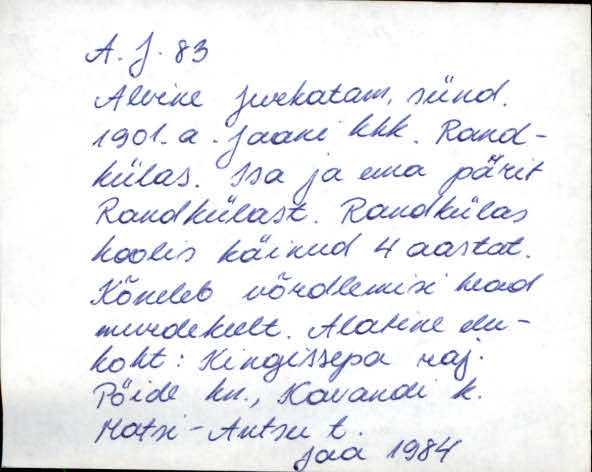 A. J. 83
Alvine Juekatam, sünd.
1901. a. Jaani khk. Rand-
külas. Isa ja ema pärit
Randkülast. Randkülas
koolis käinud 4 aastat.
Kõneleb võrdlemisi head
murdekeelt. Alatine elu-
koht: Kingissepa raj.
Pöide kn., Kavandi k.
Matsi-Antsu t.
jaa 1984